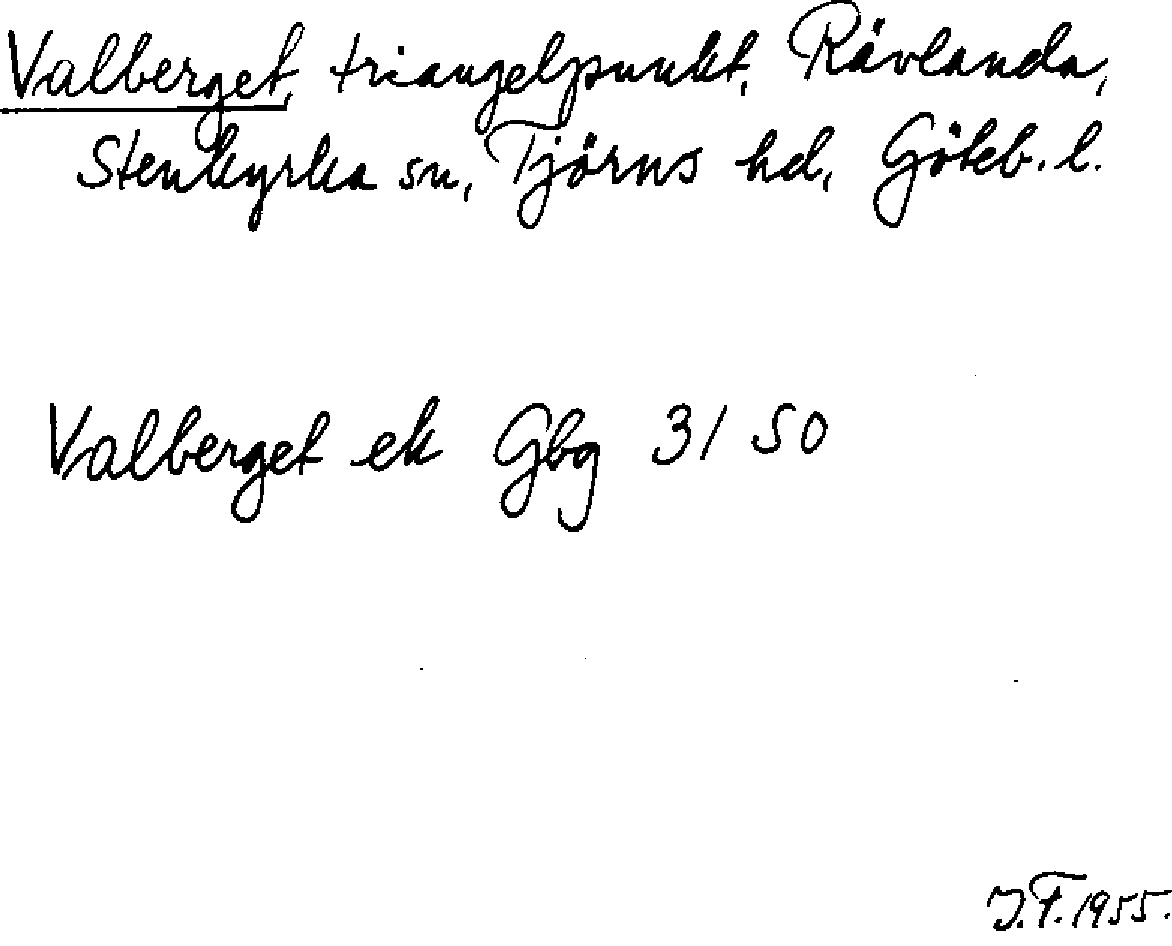 Valberget, triangelpunkt, Rävlanda,
Stenkyrka sn, Tjörns hd, Göteb. l.
Valberget ek Gbg 3/ 50
J.F. 1955.